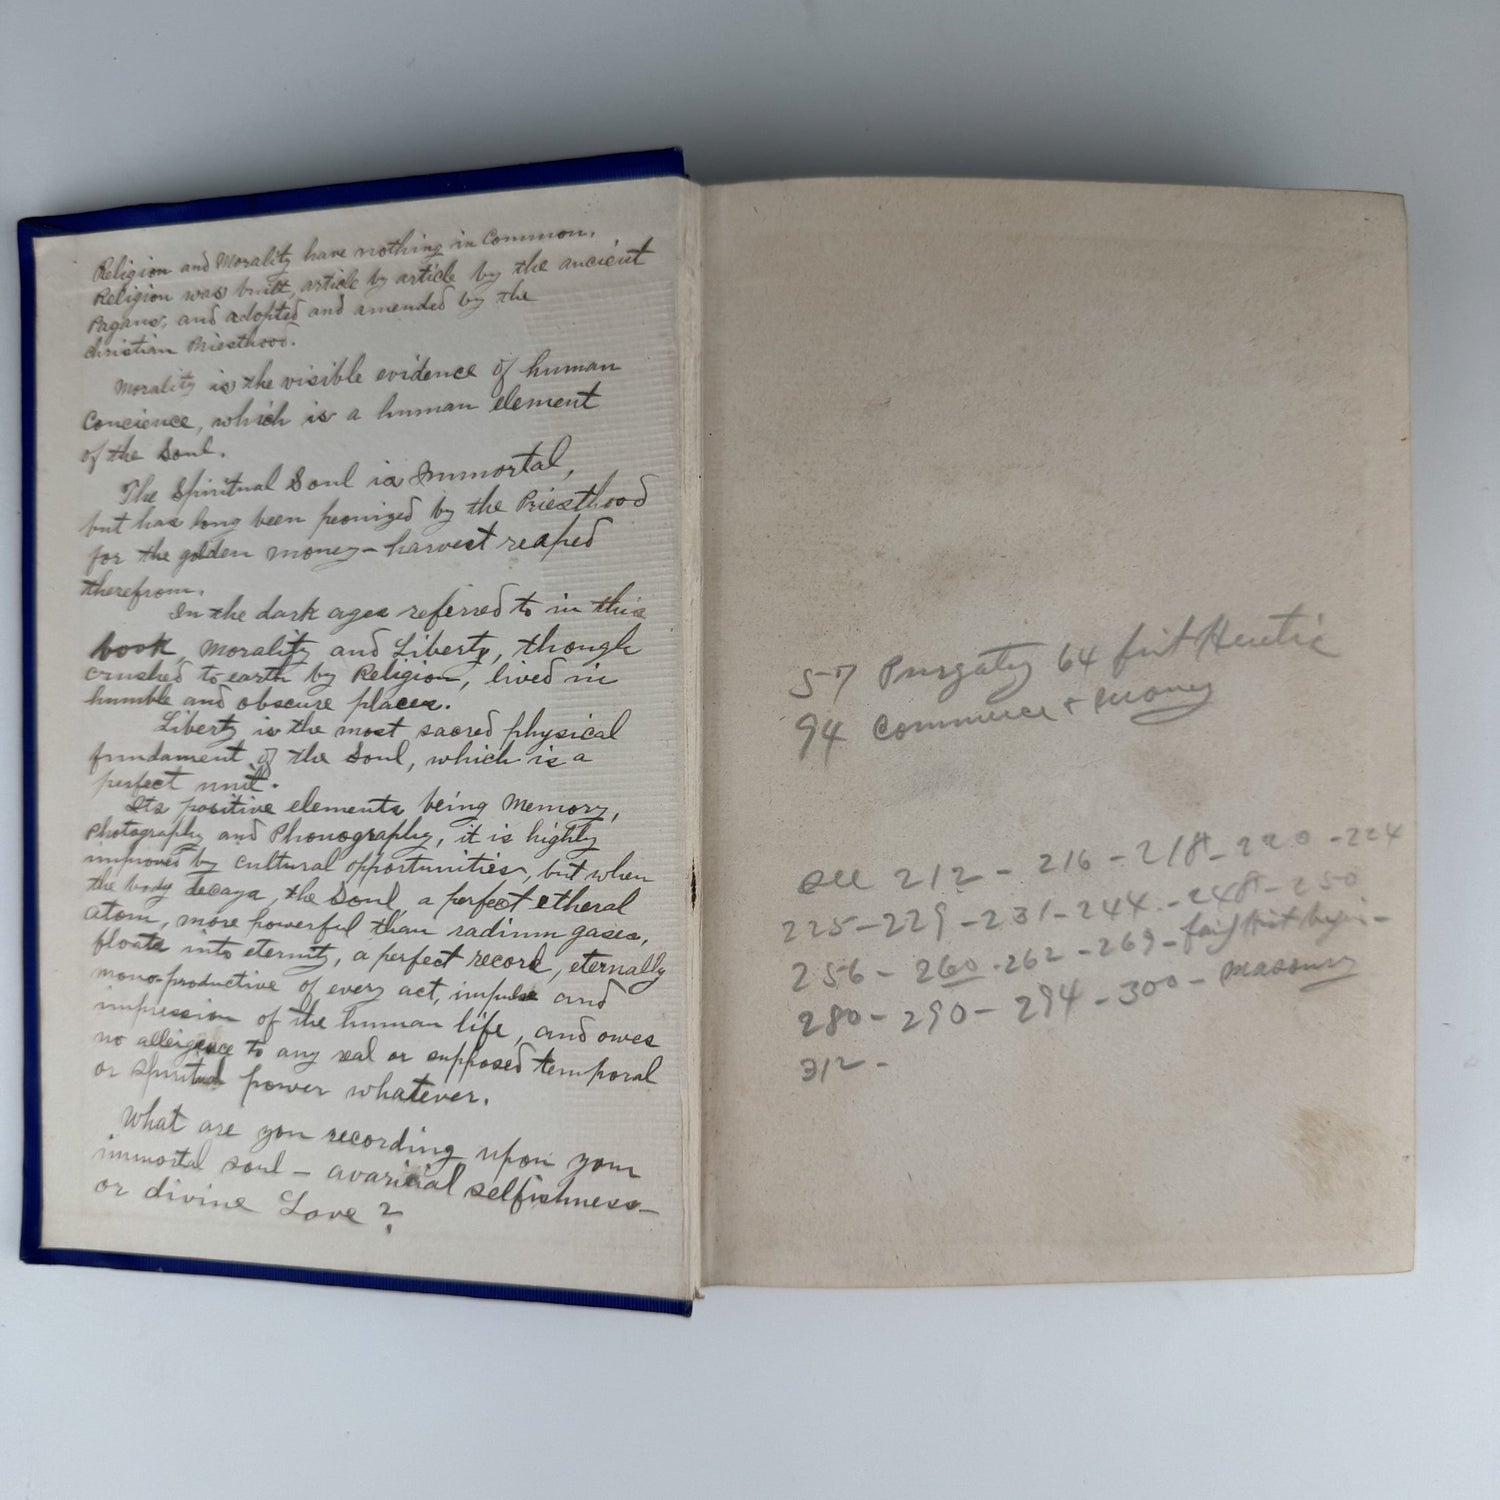 Religion and Morality have nothing in Common.
Religion was built, article by article by the ancient
Pagans, and adopted and amended by the
Christian Priesthood.
Morality is the visible evidence of human
Concience, which is a human element
of the Soul.
The Spiritual Soul is Immortal,
but has long been peonized by the Priesthood
for the golden money-harvest reaped
therefrom.
In the dark ages referred to in this
book, Morality and Liberty, though
crushed to earth by Religion, lived in
humble and obscure places.
Liberty is the most sacred physical
fundament of the Soul, which is a
perfect unit.
Its positive elements being Memory,
Photography and Phonography, it is highly
improved by cultural opportunities, but when
the body decays, the Soul, a perfect etheral
atom, more powerful than radium gases,
floats into eternity, a perfect record, eternally
mono-productive of every act, impulse and
impression of the human life, and owes
no allergence to any real or supposed temporal
or spiritual power whatever.
What are you recording upon your
immortal soul - avaricial selfishness -
or divine Love?
57 Purgaty 64 first Heretic
94 Commerce + money
see 212 - 216 - 218 - 220 - 224
225 - 229 - 231 - 244 - 248 - 250
256 - 260 - 262 - 269 -
280 - 290 - 294 - 300 - Masonry
312 -